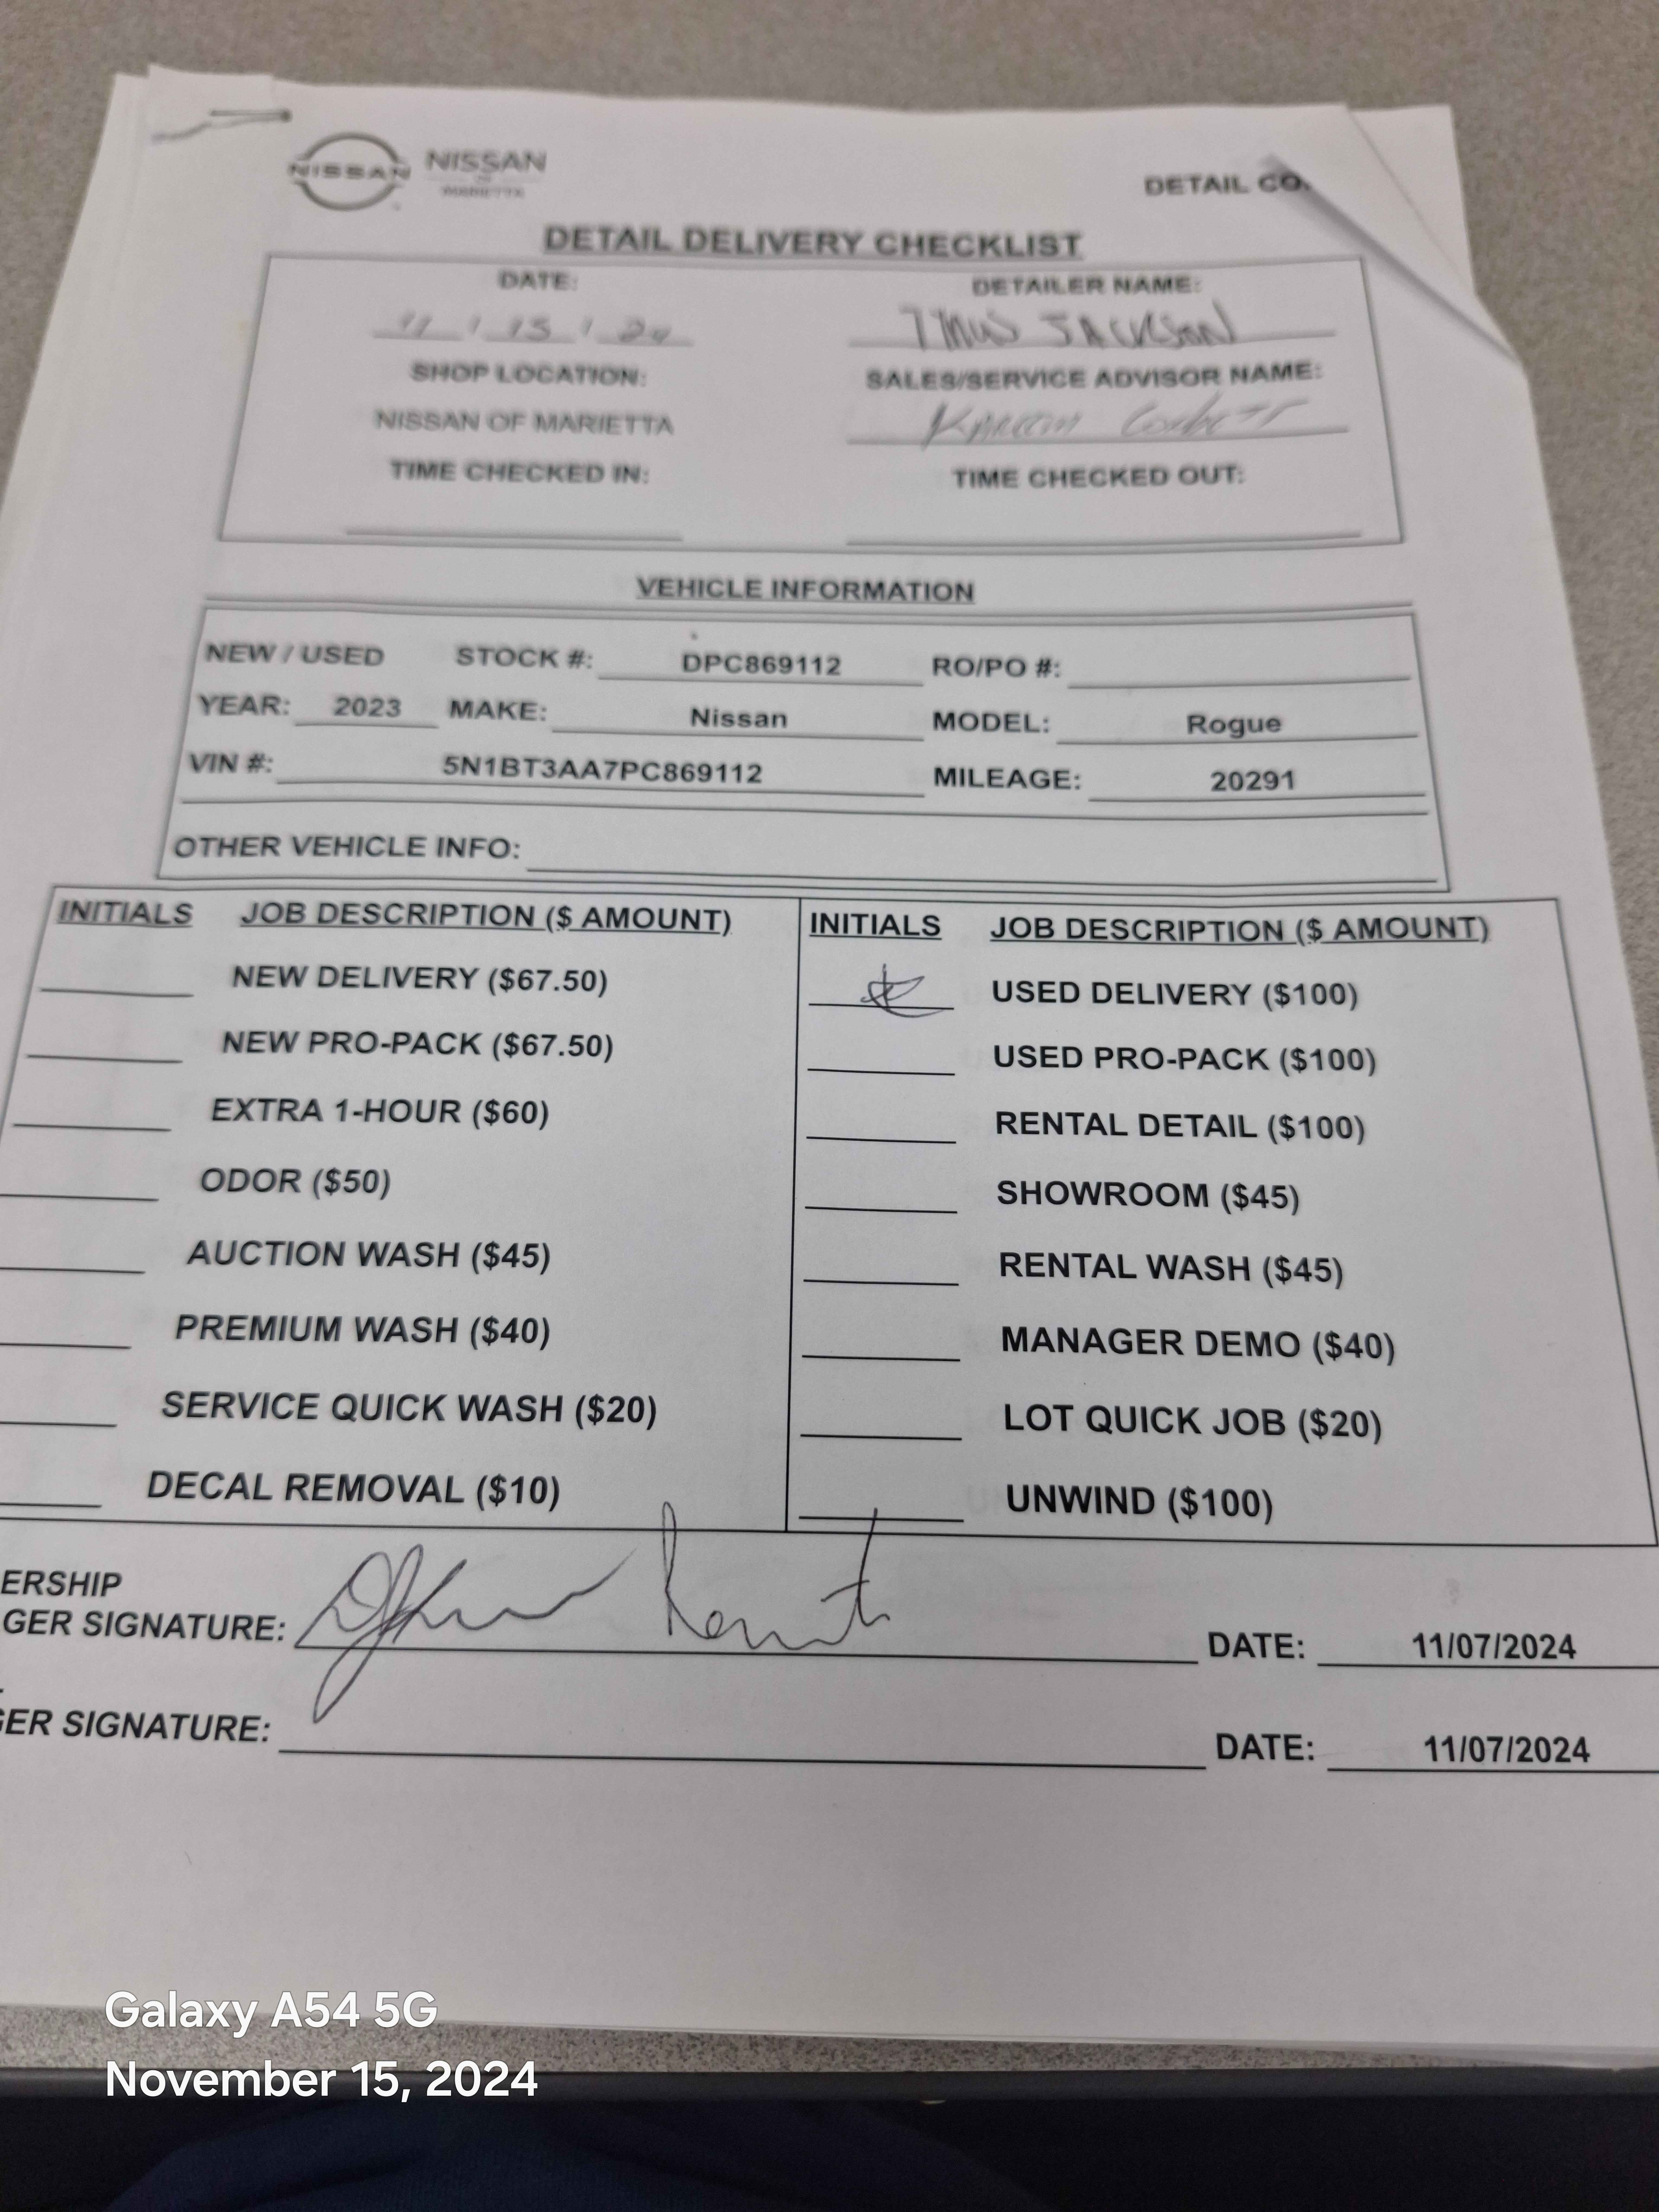 NISSAN NISSAN
OF
MARIETTA
DETAIL CO.
DETAIL DELIVERY CHECKLIST
DATE: DETAILER NAME:
11 / 15 / 24 JACKSON
SHOP LOCATION: SALES/SERVICE ADVISOR NAME:
NISSAN OF MARIETTA
TIME CHECKED IN: TIME CHECKED OUT:
VEHICLE INFORMATION
NEW / USED STOCK #: DPC869112 RO/PO #:
YEAR: 2023 MAKE: Nissan MODEL: Rogue
VIN #: 5N1BT3AA7PC869112 MILEAGE: 20291
OTHER VEHICLE INFO:
INITIALS JOB DESCRIPTION ($ AMOUNT) INITIALS JOB DESCRIPTION ($ AMOUNT)
NEW DELIVERY ($67.50) USED DELIVERY ($100)
NEW PRO-PACK ($67.50) USED PRO-PACK ($100)
EXTRA 1-HOUR ($60) RENTAL DETAIL ($100)
ODOR ($50) SHOWROOM ($45)
AUCTION WASH ($45) RENTAL WASH ($45)
PREMIUM WASH ($40) MANAGER DEMO ($40)
SERVICE QUICK WASH ($20) LOT QUICK JOB ($20)
DECAL REMOVAL ($10) UNWIND ($100)
ERSHIP
GER SIGNATURE: DATE: 11/07/2024
GER SIGNATURE: DATE: 11/07/2024
Galaxy A54 5G
November 15, 2024